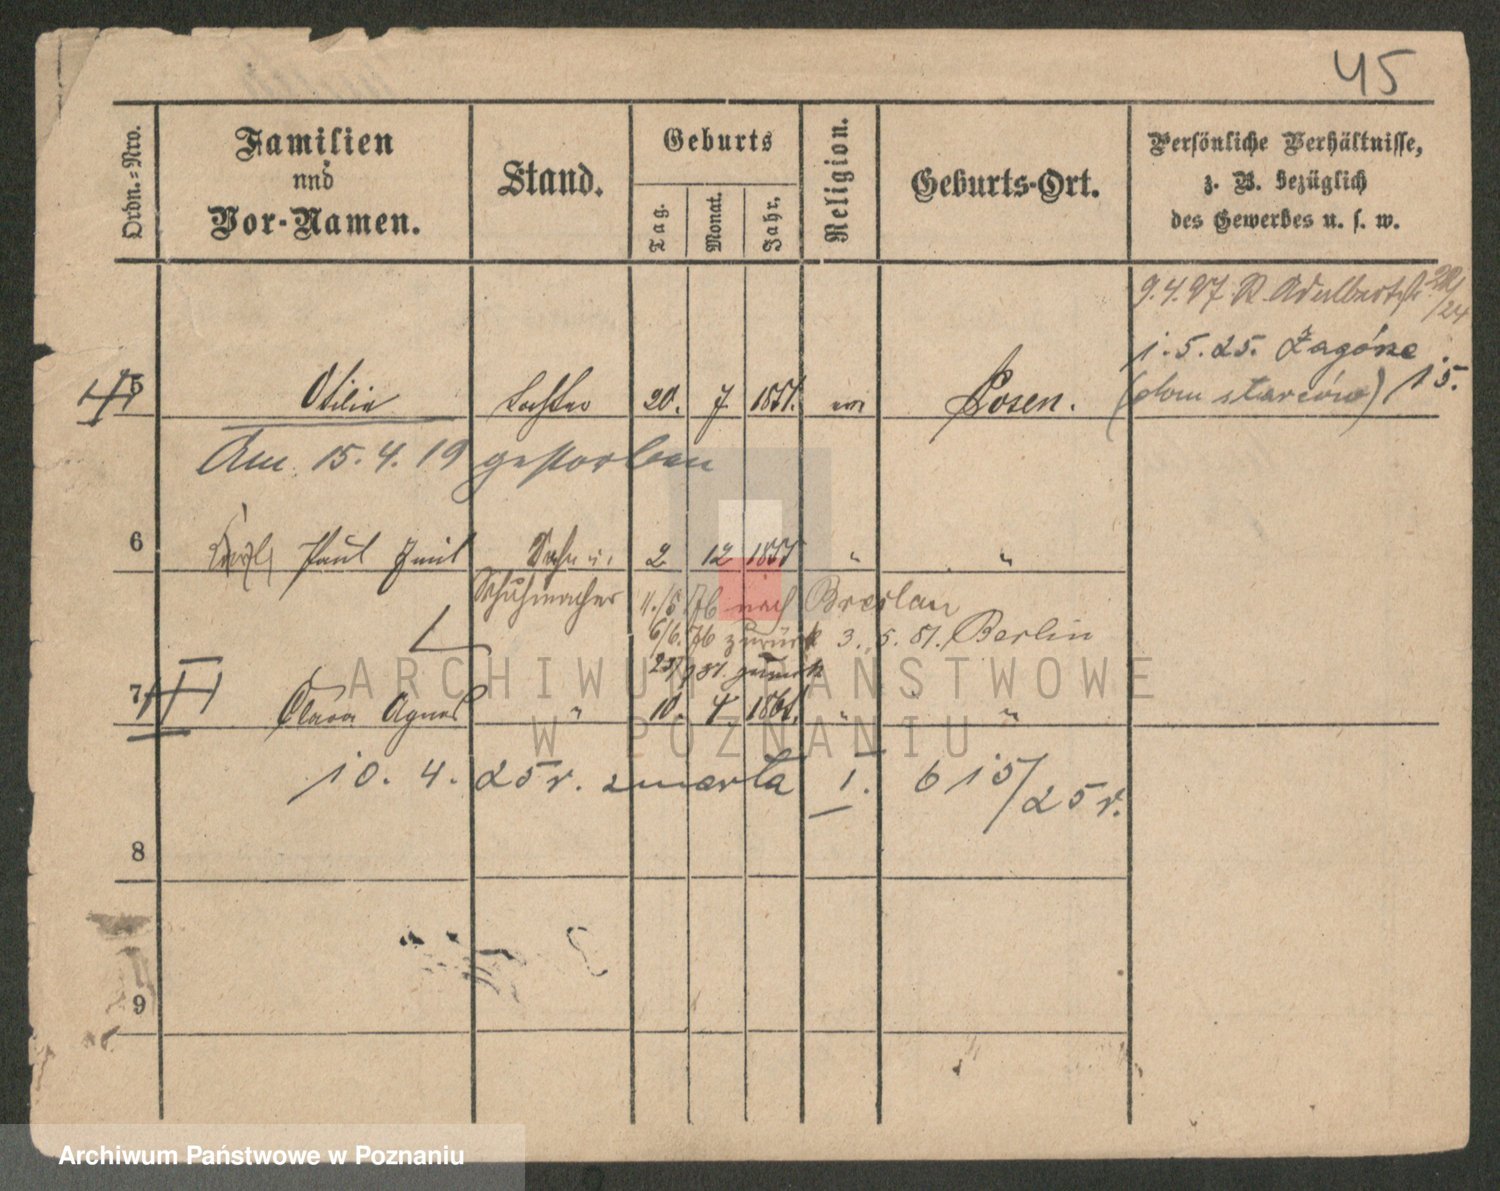 45
Ordn.=Nro.
Familien
und
Vor-Namen.
Stand.
Geburts
Tag.
Monat.
Jahr.
Religion.
Geburts-Ort.
Persönliche Verhältnisse,
z. B. bezüglich
des Gewerbes u. s. w.
9.4.97 R. Adalbertstr 28/24
1.5.25. Zagórze
(dom starców) 15.
5 Otilie Tochter 20. 7 1851. ev Posen.
Am 15.4.19 gestorben
6 Paul Emil Sohn u. 2 12 1855 " "
Schuhmacher 4./5. 76 nach Breslau
6/6. 76 zurück 3. 5. 81. Berlin
81. zurück
7 Clara Agnes " 10. 4. 1861. " "
10. 4. 25 r. zmarła I. 615/25 r.
8
9
ARCHIWUM PAŃSTWOWE
W POZNANIU
Archiwum Państwowe w Poznaniu